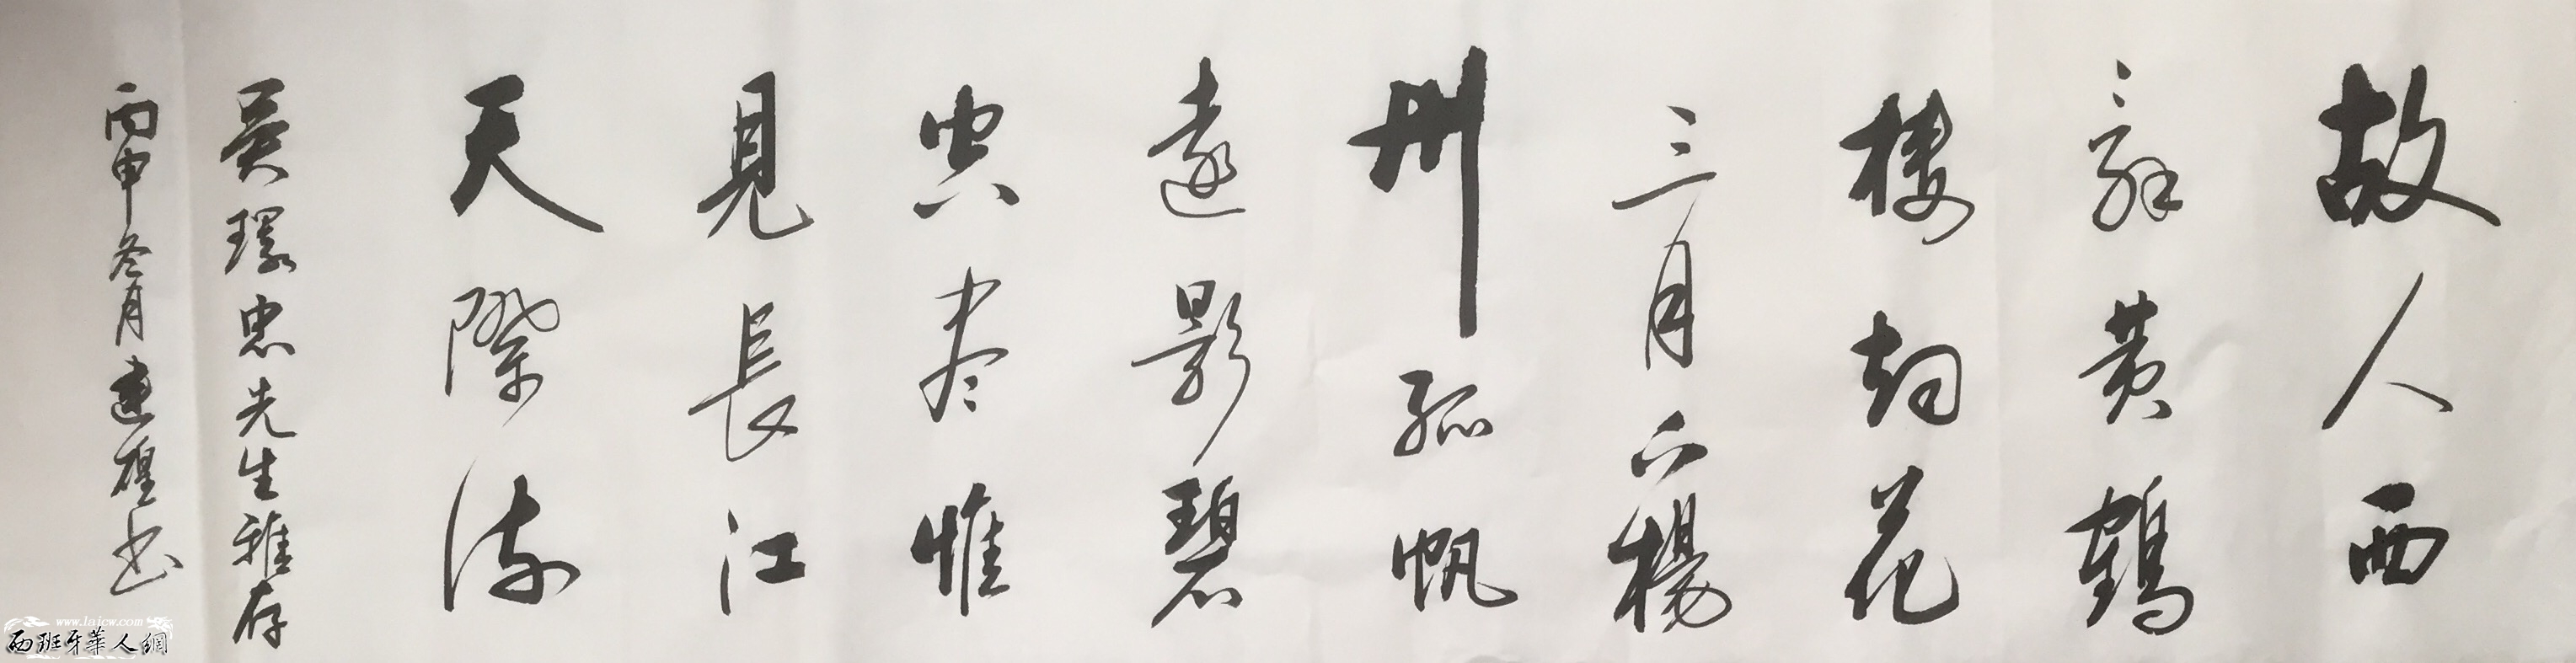 故人西
辭黄鶴
樓烟花
三月下楊
州孤帆
遠影碧
空尽惟
見長江
天際流
吴環忠先生雅存
丙申冬月建雄书
www.lajcw.com
西班牙華人網